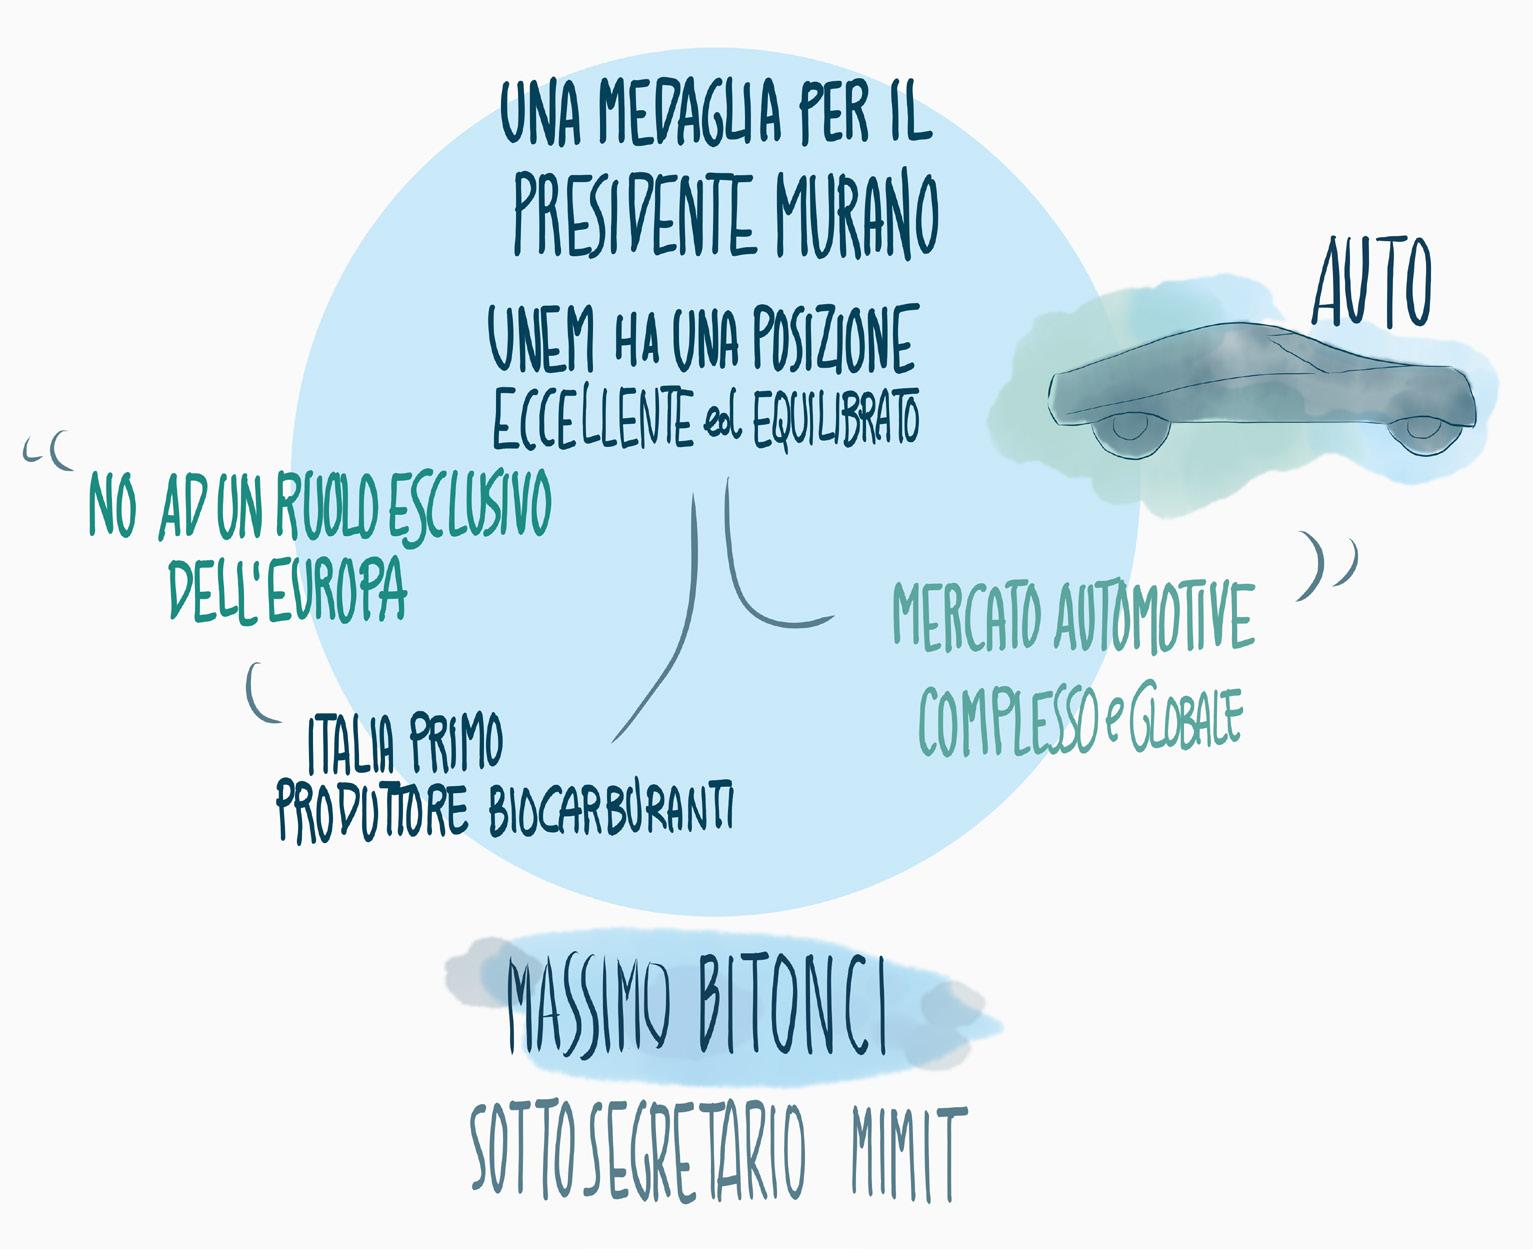 UNA MEDAGLIA PER IL
PRESIDENTE MURANO
UNEM HA UNA POSIZIONE
ECCELLENTE ed EQUILIBRATO
AUTO
“NO AD UN RUOLO ESCLUSIVO
DELL'EUROPA
MERCATO AUTOMOTIVE
COMPLESSO e GLOBALE
ITALIA PRIMO
PRODUTTORE BIOCARBURANTI
MASSIMO BITONCI
SOTTOSEGRETARIO MIMIT